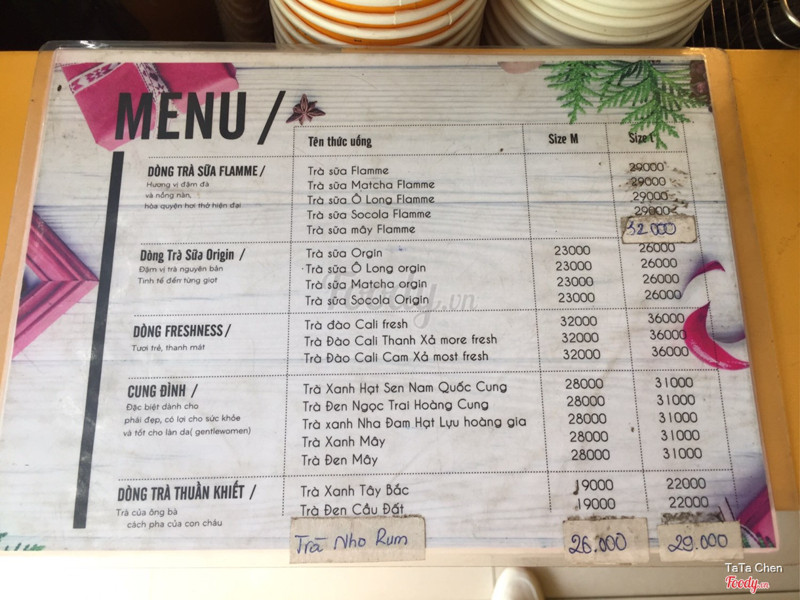 MENU /
Tên thức uống Size M Size L
DÒNG TRÀ SỮA FLAMME/
Hương vị đậm đà
và nồng nàn,
hòa quyện hơi thở hiện đại
Trà sữa Flamme 29000
Trà sữa Matcha Flamme 29000
Trà sữa Ô Long Flamme 29000
Trà sữa Socola Flamme 29000
Trà sữa mây Flamme 32.000
Dòng Trà Sữa Origin /
Đậm vị trà nguyên bản
Tinh tế đến từng giọt
Trà sữa Orgin 23000 26000
Trà sữa Ô Long orgin 23000 26000
Trà sữa Matcha orgin 23000 26000
Trà sữa Socola Origin 23000 26000
DÒNG FRESHNESS/
Tươi trẻ, thanh mát
Trà đào Cali fresh 32000 36000
Trà Đào Cali Thanh Xả more fresh 32000 36000
Trà Đào Cali Cam Xả most fresh 32000 36000
CUNG ĐÌNH /
Đặc biệt dành cho
phái đẹp, có lợi cho sức khỏe
và tốt cho làn da( gentlewomen)
Trà Xanh Hạt Sen Nam Quốc Cung 28000 31000
Trà Đen Ngọc Trai Hoàng Cung 28000 31000
Trà xanh Nha Đam Hạt Lựu hoàng gia 28000 31000
Trà Xanh Mây 28000 31000
Trà Đen Mây 28000 31000
DÒNG TRÀ THUẦN KHIẾT /
Trà của ông bà
cách pha của con cháu
Trà Xanh Tây Bắc 19000 22000
Trà Đen Cầu Đất 19000 22000
Trà Nho Rum 26.000 29.000
Foody.vn
TaTa Chen
Foody.vn